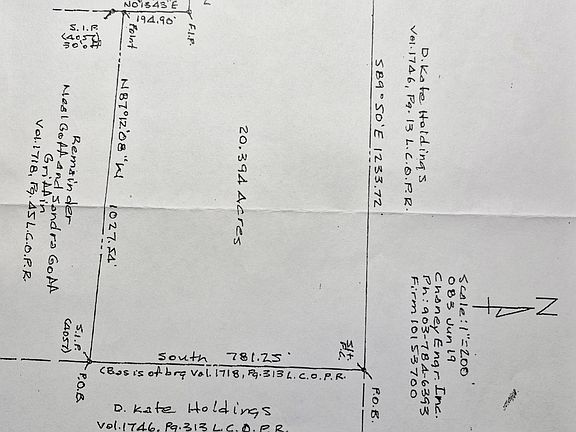 N0°13'43"E
194.90'
F.I.P.
Point
N87°12'08"W 1027.54'
Remainder
Neal Goff and Sandra Goff
Griffin
Vol.1718, Pg.45 L.C.O.P.R.
20.394 Acres
S89°50'E 1233.72'
D. Kate Holdings
Vol.1746, Pg.313 L.C.O.P.R.
N
Scale: 1"=200'
083 Jun 19
Chaney Engr. Inc.
Ph: 903-784-6393
Firm 10153700
S.I.P.
(4057)
P.O.B.
South 781.25'
(Basis of brg Vol.1718, Pg.313 L.C.O.P.R.
P.O.B.
D. Kate Holdings
Vol.1746, Pg.313 L.C.O.P.R.